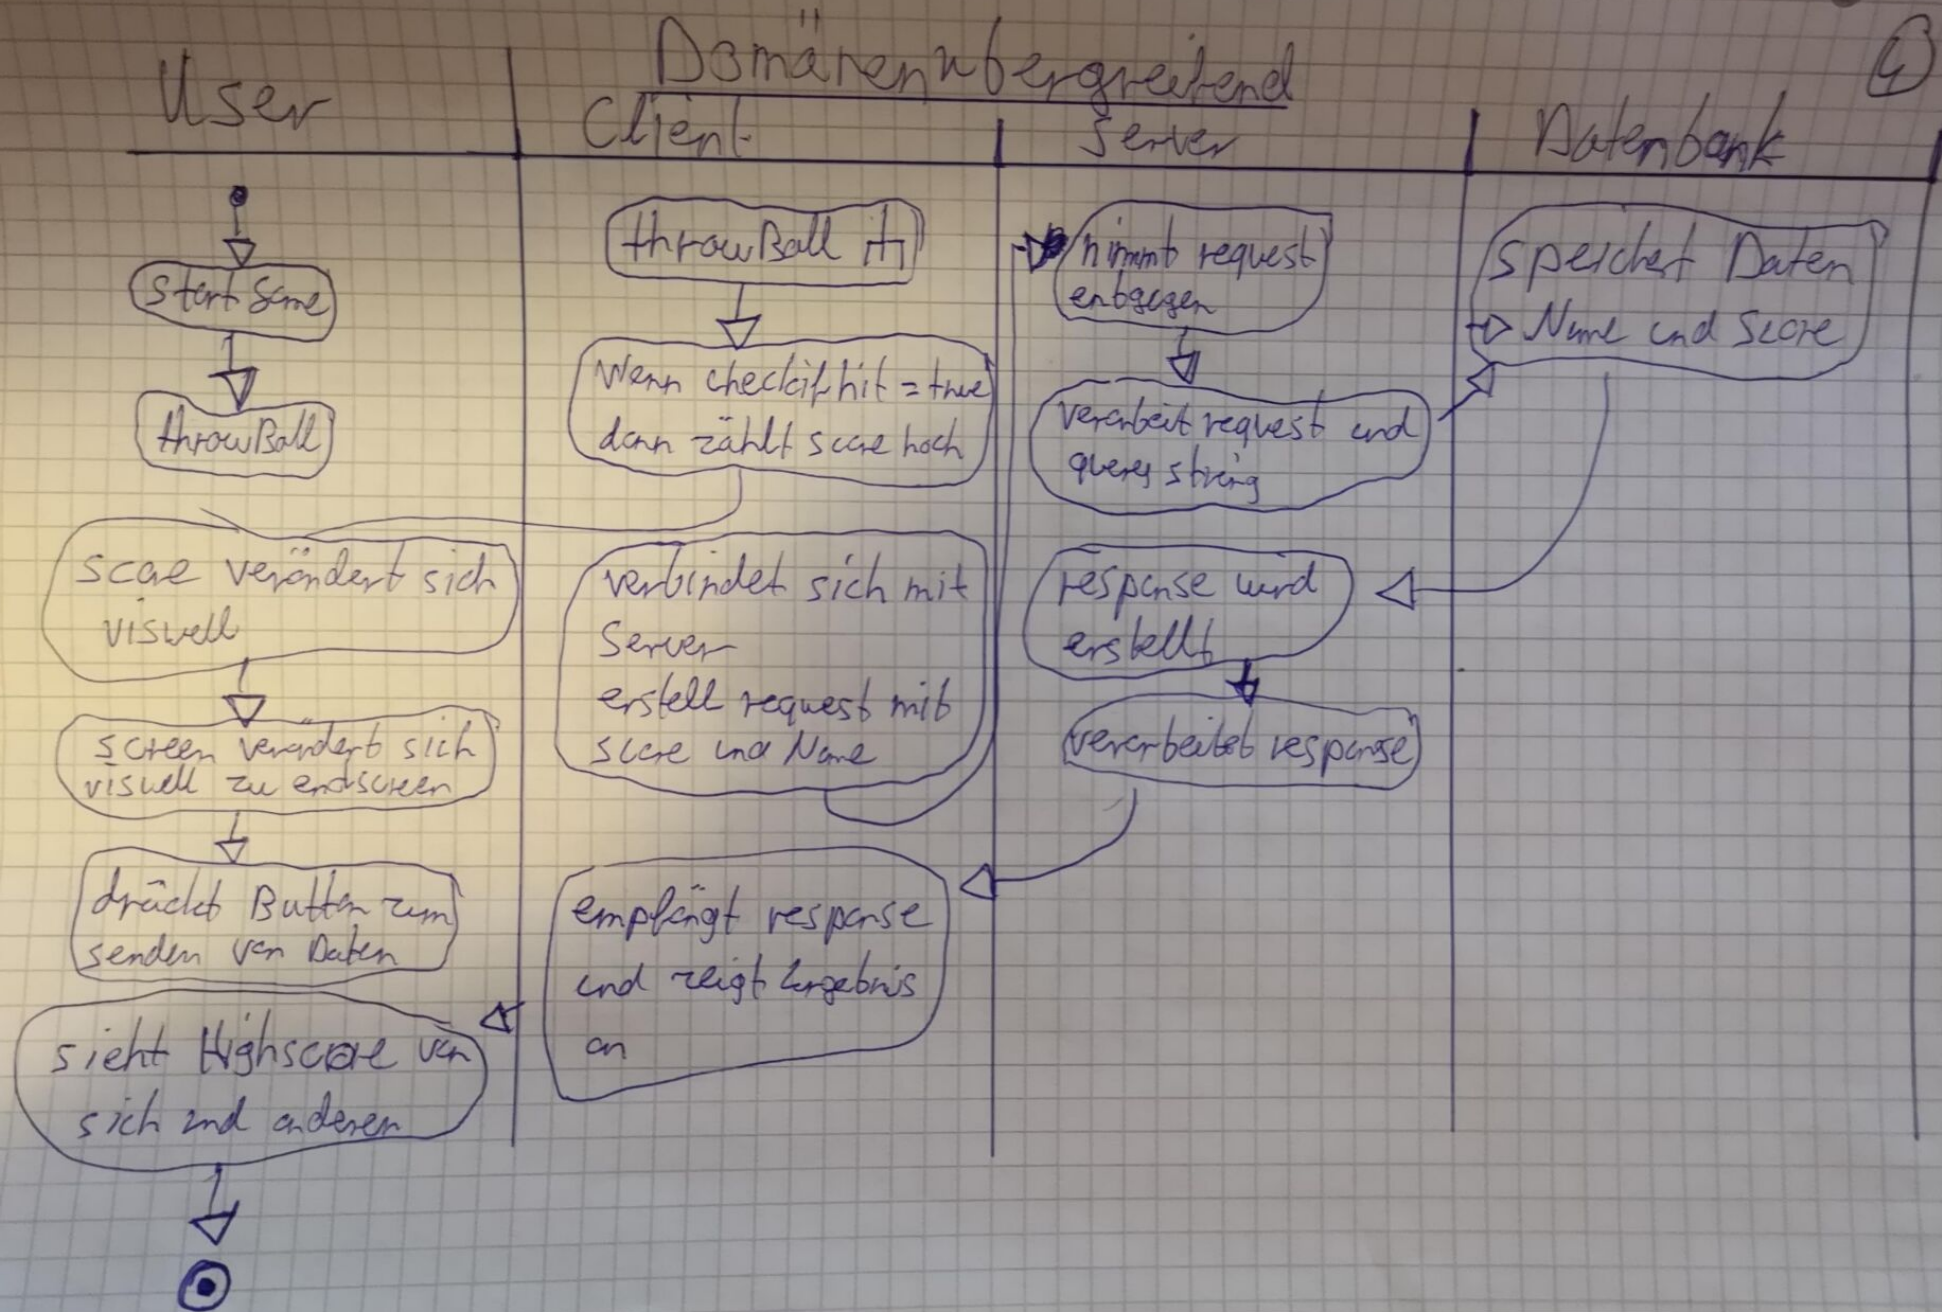 Domänenübergreifend
4
User
Client
Server
Datenbank
start Game
throwBall
score verändert sich
visuell
screen verändert sich
visuell zu endscreen
drückt Button zum
senden von Daten
sieht Highscore von
sich und anderen
throwBall
Wenn checkifhit = true
dann zählt score hoch
verbindet sich mit
Server
erstell request mit
score und Name
empfängt response
und zeigt Ergebnis
an
nimmt request
entgegen
verarbeit request und
query string
response wird
erstellt
verarbeitet response
speichert Daten
Name und Score